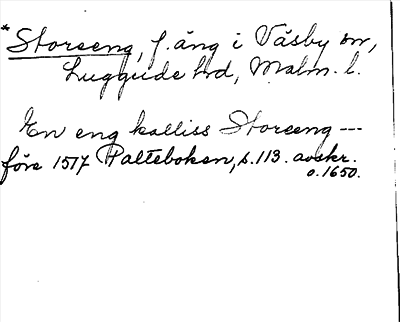 *Storeeng, f. äng i Väsby sn,
Luggude hd, Malm. l.
En eng kalliss Storeeng ---
före 1517 Palteboken, s. 113. avskr.
o. 1650.